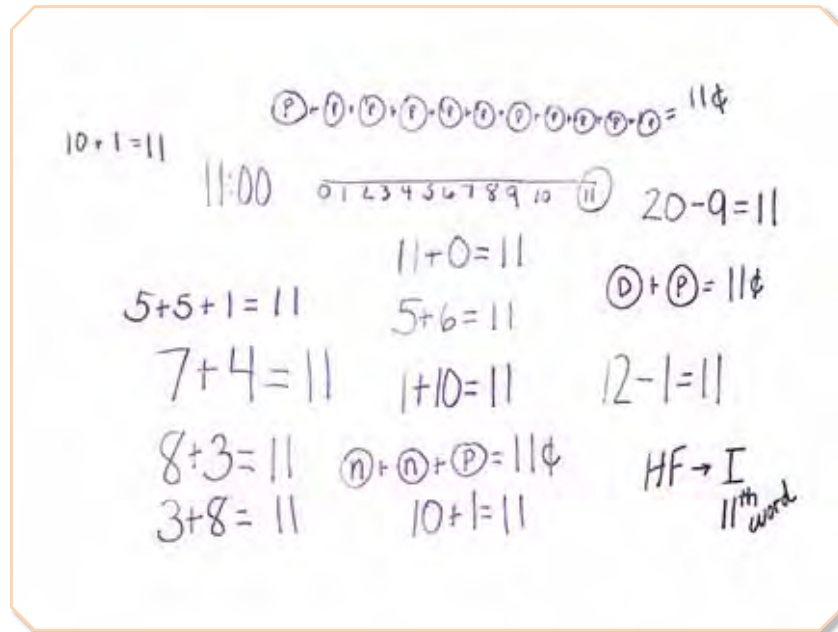 Ⓟ+Ⓟ+Ⓟ+Ⓟ+Ⓟ+Ⓟ+Ⓟ+Ⓟ+Ⓟ+Ⓟ+Ⓟ= 11¢
10+1=11
11:00
0 1 2 3 4 5 6 7 8 9 10 11
20-9=11
11+0=11
Ⓓ+Ⓟ= 11¢
5+5+1= 11
5+6=11
7+4=11
1+10=11
12-1=11
8+3=11
ⓝ+ⓝ+Ⓟ=11¢
HF→I
11th word
3+8= 11
10+1=11